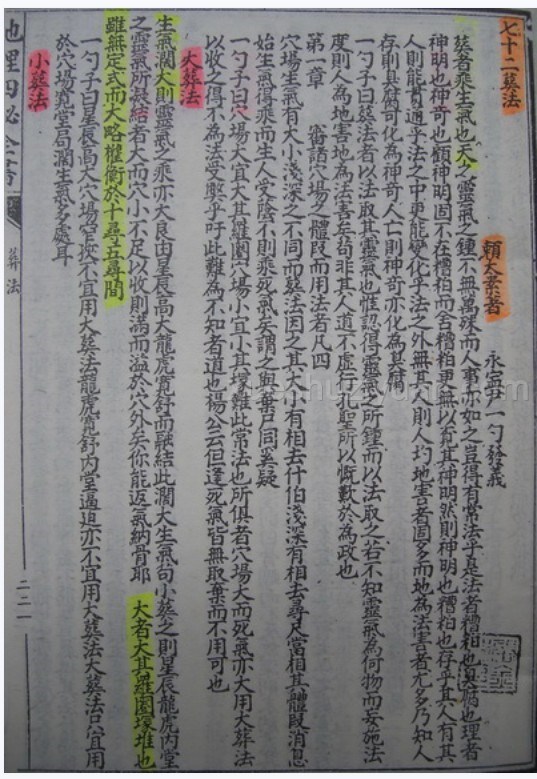 七十二葬法
賴太素著
永寧尹一勺發義
葬者乘生氣也天之靈氣之鍾不無萬殊而人事亦如之豈得有常法乎是法者糟粕也臭腐也理者
神明也神奇也顧神明固不在糟粕而舍糟粕更無以寬其神明然則神明也糟粕也存乎其人有其
人則能貫通乎法之中更能變化乎法之外無其人則人圴地害者固多而地為法害者尤多乃知人
存則臭腐可化為神奇人亡則神奇亦化為臭腐
一勺子曰葬法者以法取其靈氣也惟認得靈氣之所鍾而以法取之若不知靈氣為何物而妄施法
度則人為地害地為法害矣苟非其人道不虛行孔聖所以慨歎於為政也
第一章 審諸穴場之體段而用法者凡四
穴場生氣有大小淺深之不同而葬法因之其大小有相去什伯淺深有相去尋尺當相其體段消息
始生氣得乘而生人受蔭不則乘死氣矣謂之與棄尸同奚疑
一勺子曰穴場大宜大其羅圍穴場小宜小其塚難此常法也所俱者穴場大而死氣亦大用大葬法
以收之得不為法受愍乎吁此難為不知者道也楊公云但逢死氣皆無取棄而不用可也
大葬法
生氣濶大則靈氣之乘亦大良由星辰高大龍虎寬舒而融結此濶大生氣句小葬之則星辰龍虎內堂
之靈氣所凝結者大而穴小不足以收則滿而溢於穴外矣你能返氣納骨耶 大者大其羅圍墳堆也
雖無定式而大略權衡於十尋五尋間
一勺子曰星辰高大穴場窄拶不宜用大葬法龍虎寬舒內堂逼迫亦不宜用大葬法大葬法只宜用
於穴場寬堂局濶生氣多處耳
小葬法
葬法
二二一
shuziyu.com